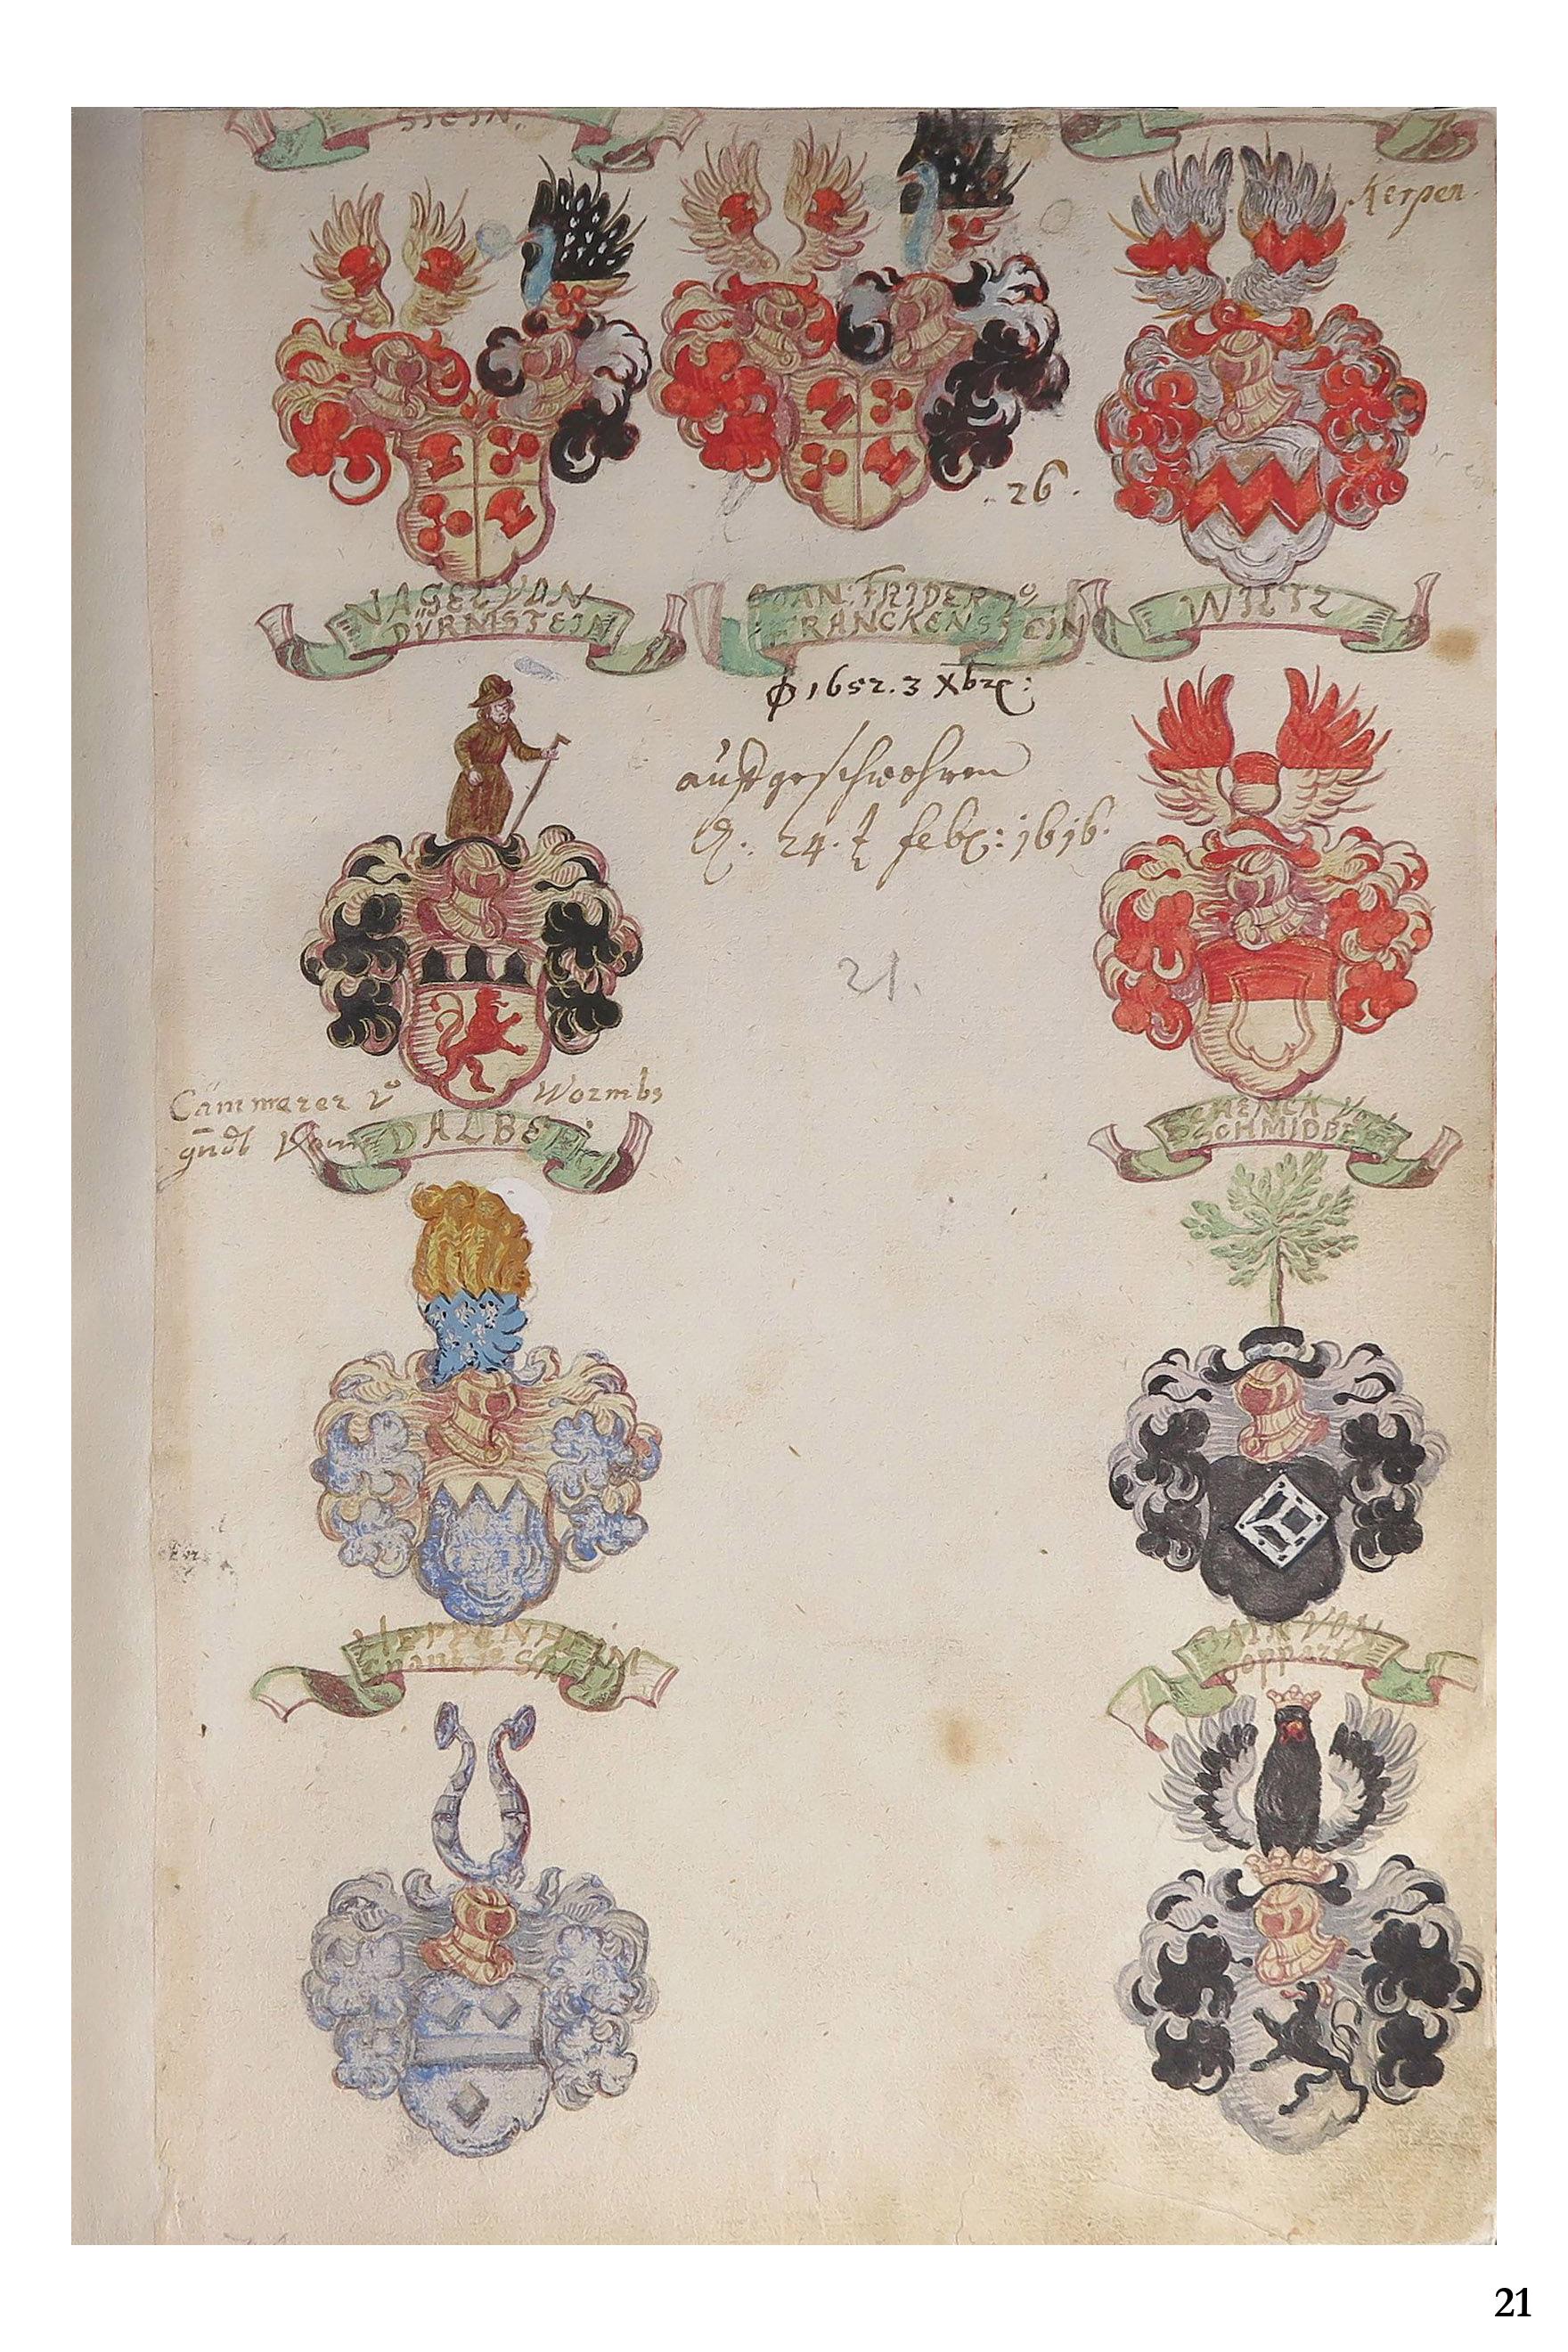 STEIN.
Kerpen.
.26.
NAGEL VON
DÜRMSTEIN
JOAN: FRIDER: vo
FRANCKENSTEIN
WILTZ
1652. 3 Xbre:
aufgeschwohren
24. febr: 1616.
21.
Cämmerer vo Wormbs
gndt Von DALBERG
SCHENCK VON
SCHMIDBERG
HEPPENHEIM
genant Saal
BAIR VON
Boppart
21